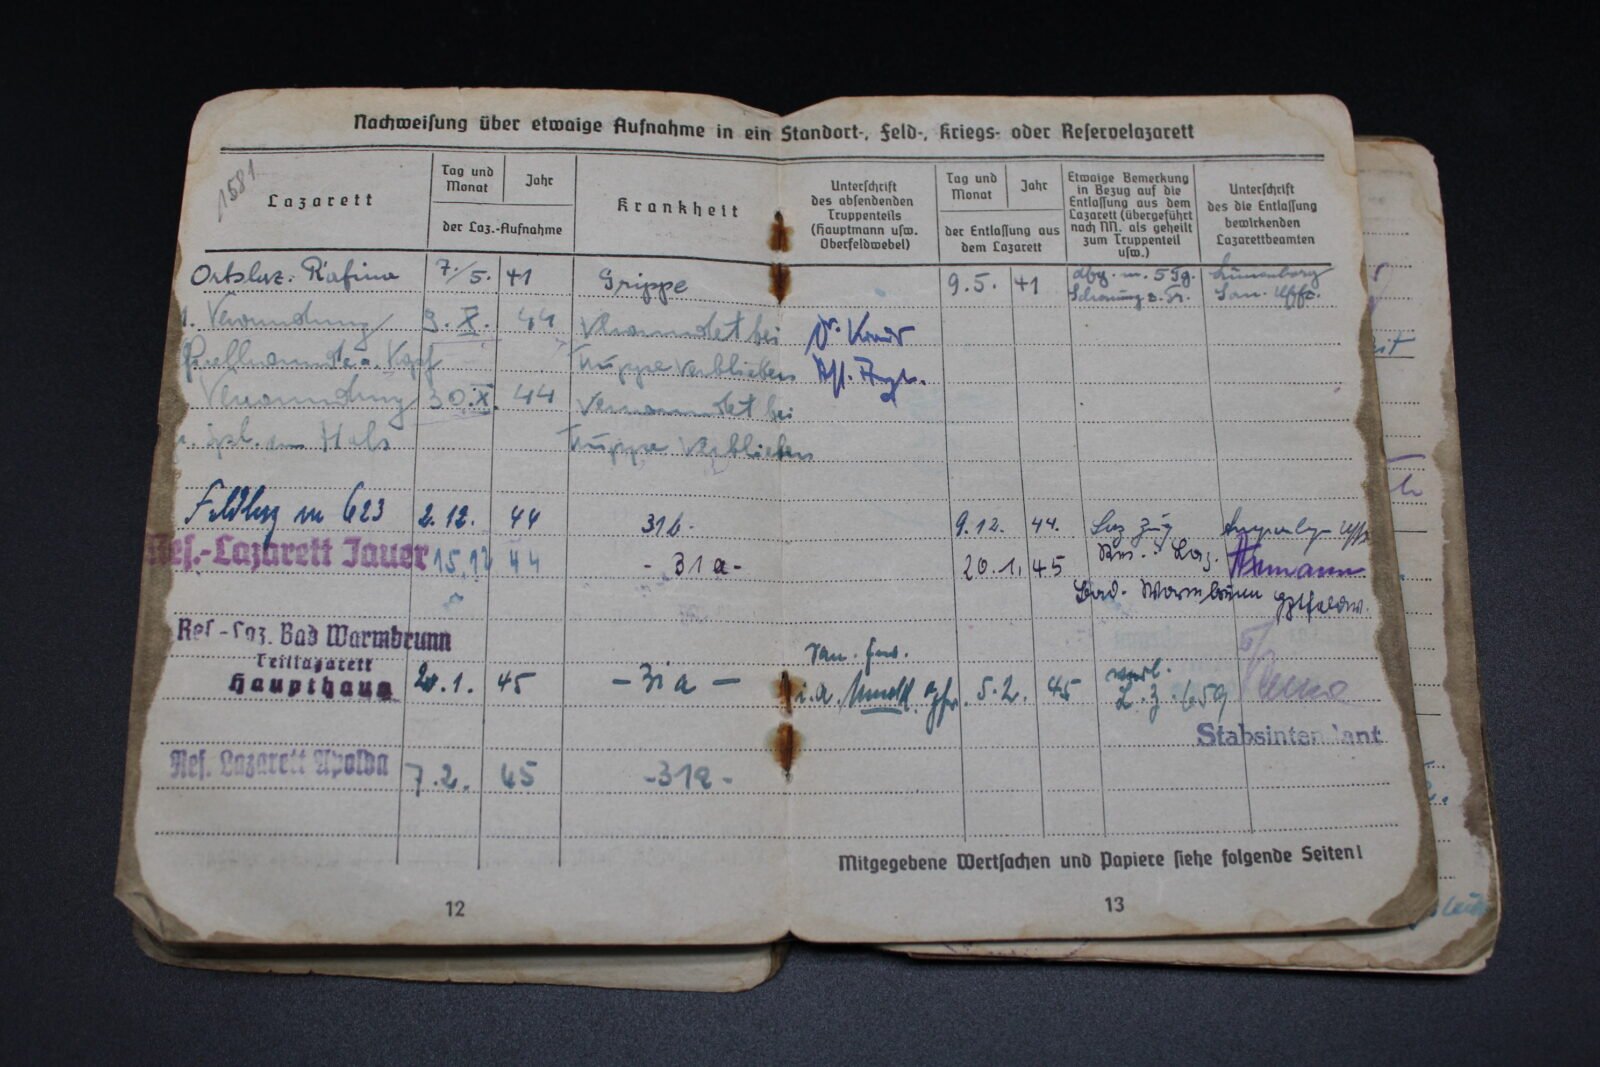 Nachweisung über etwaige Aufnahme in ein Standort-, Feld-, Kriegs- oder Reservelazarett
1581
Lazarett
Tag und Monat
Jahr
der Laz.-Aufnahme
Krankheit
Unterschrift
des absendenden
Truppenteils
(Hauptmann usw.
Oberfeldwebel)
Tag und Monat
Jahr
der Entlassung aus
dem Lazarett
Etwaige Bemerkung
in Bezug auf die
Entlassung aus dem
Lazarett (übergeführt
nach NN. als geheilt
zum Truppenteil
usw.)
Unterschrift
des die Entlassung
bewirkenden
Lazarettbeamten
Ortslaz. Rafina 7./5. 41 Grippe 9.5. 41 m. 5 Tg.
Schonung z. Tr. San. Uffz.
1. Verwundung 9.X. 44 Verwundet bei Dr.
Kopf Truppe verblieben
Verwundung 30.X. 44 Verwundet bei
Hals Truppe verblieben
623 2.12. 44 31b. 9.12. 44. Laz Zug
Res.-Lazarett Jauer 15.12 44 - 31a - 20.1. 45 Res. Laz.
Bad. Warmbrunn
Res.-Laz. Bad Warmbrunn
Teillazarett
Haupthaus 20.1. 45 - 31a - i.A. 5.2. 45 L.Z. 659
Stabsintendant
Res. Lazarett Apolda 7.2. 45 - 31a -
Mitgegebene Wertsachen und Papiere siehe folgende Seiten!
12
13